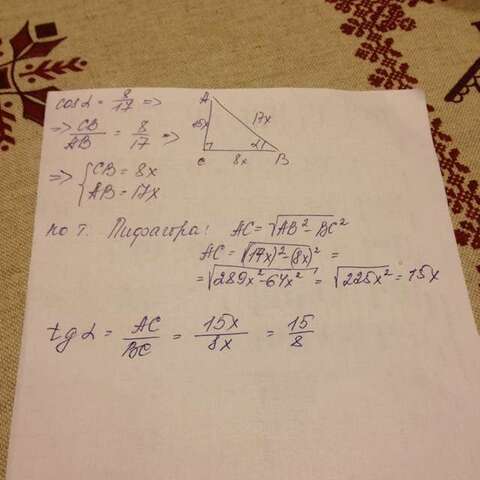 cos α = 8/17 =>
=> CB/AB = 8/17 =>
A
15x
17x
C
8x
α
B
=> { CB = 8x
AB = 17x
по т. Пифагора: AC = √AB² - BC²
AC = √(17x)² - (8x)² =
= √289x² - 64x² = √225x² = 15x
tg α = AC/BC = 15x/8x = 15/8